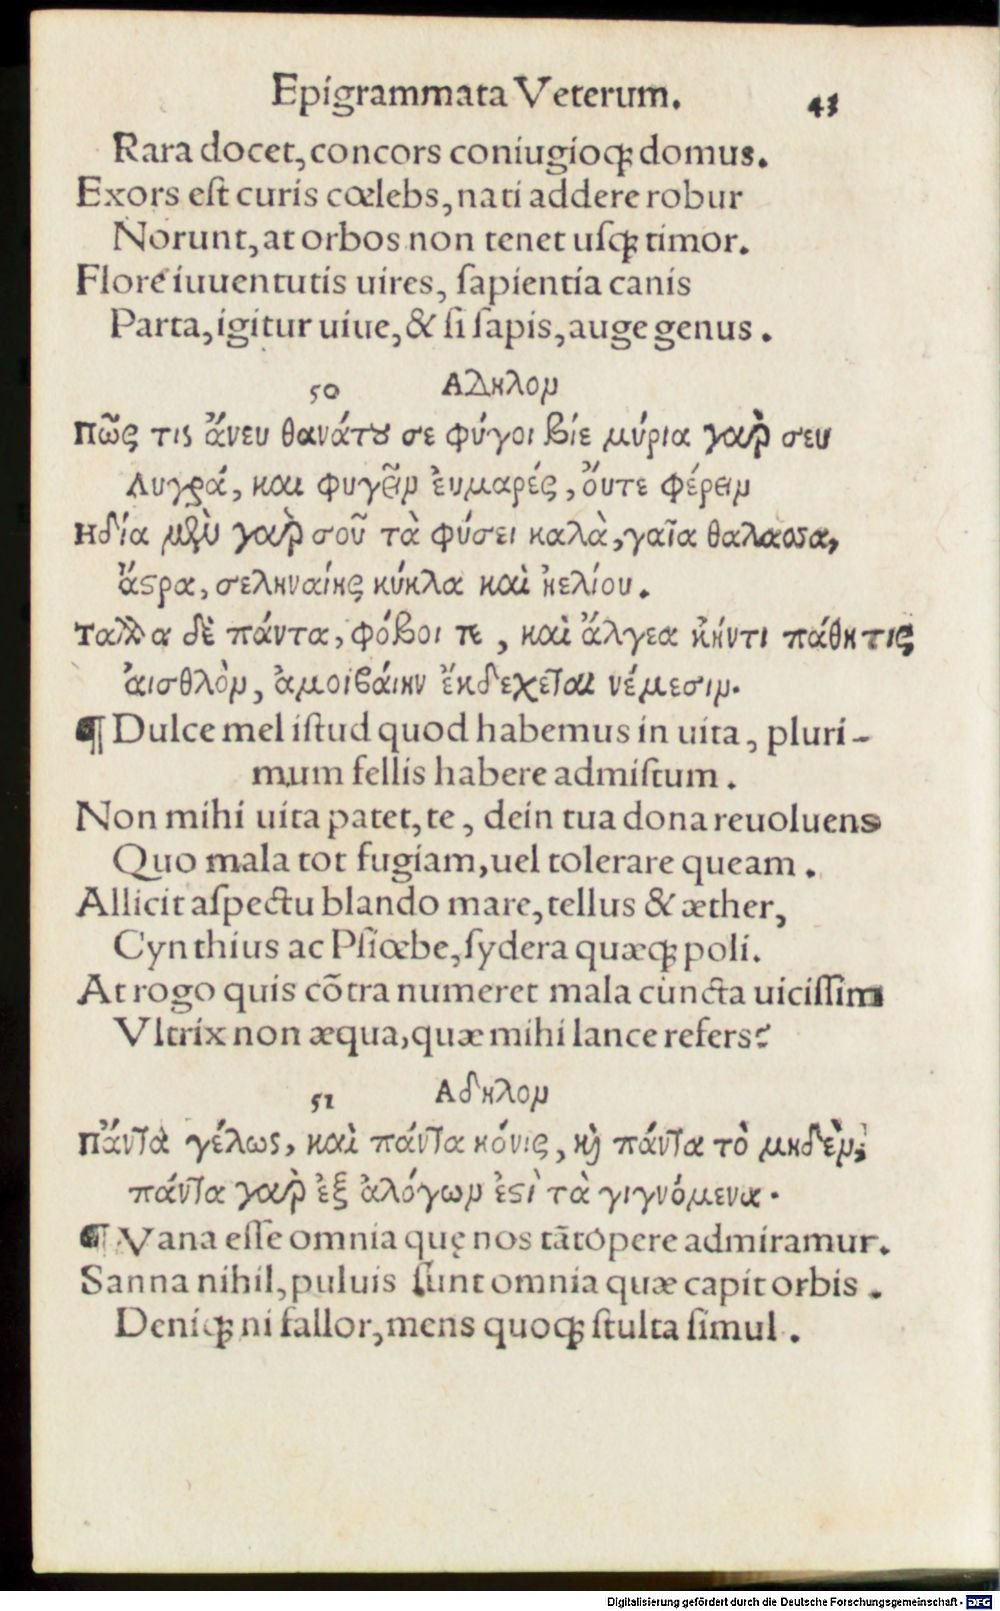 Epigrammata Veterum. 43
Rara docet, concors coniugioq; domus.
Exors eſt curis cœlebs, nati addere robur
Norunt, at orbos non tenet uſq; timor.
Flore iuuentutis uires, ſapientia canis
Parta, igitur uiue, & ſi ſapis, auge genus.
50 Αδηλομ
Πῶς τις ἄνευ θανάτȣ σε φύγοι βίε μύρια γαρ̀ σευ
Λυγρά, και φυγεῖμ ἐυμαρές, ὄυτε φέρειμ
Ηδία μεν̀ γαρ̀ σοῦ τὰ φύσει καλὰ, γαῖα θαλαοσα,
ἄϛρα, σεληναίης κύκλα καὶ ἠελίου.
Ταλλα δὲ πάντα, φόβοι τε, καὶ ἄλγεα κἠντι πάθητις
ἀισθλὸμ, ἀμοιβάιην ἐκδεχεῖται νέμεσιμ.
¶ Dulce mel iſtud quod habemus in uita, pluri-
mum fellis habere admiſtum.
Non mihi uita patet, te, dein tua dona reuoluens
Quo mala tot fugiam, uel tolerare queam.
Allicit aſpectu blando mare, tellus & æther,
Cynthius ac Pſiœbe, ſydera quæq; poli.
At rogo quis cõtra numeret mala cuncta uiciſſim
Vltrix non æqua, quæ mihi lance refers?
51 Αδηλομ
Πἄντα γέλως, καὶ πάντα κόνις, κὶ πάντα τὸ μηδὲμ,
πάντα γαρ̀ ἐξ ἀλόγωμ ἐϛὶ τὰ γιγνόμενα.
¶ Vana eſſe omnia quę nos tãtopere admiramur.
Sanna nihil, puluis ſunt omnia quæ capit orbis.
Deniq; ni fallor, mens quoq; ſtulta ſimul.
Digitalisierung gefördert durch die Deutsche Forschungsgemeinschaft - DFG